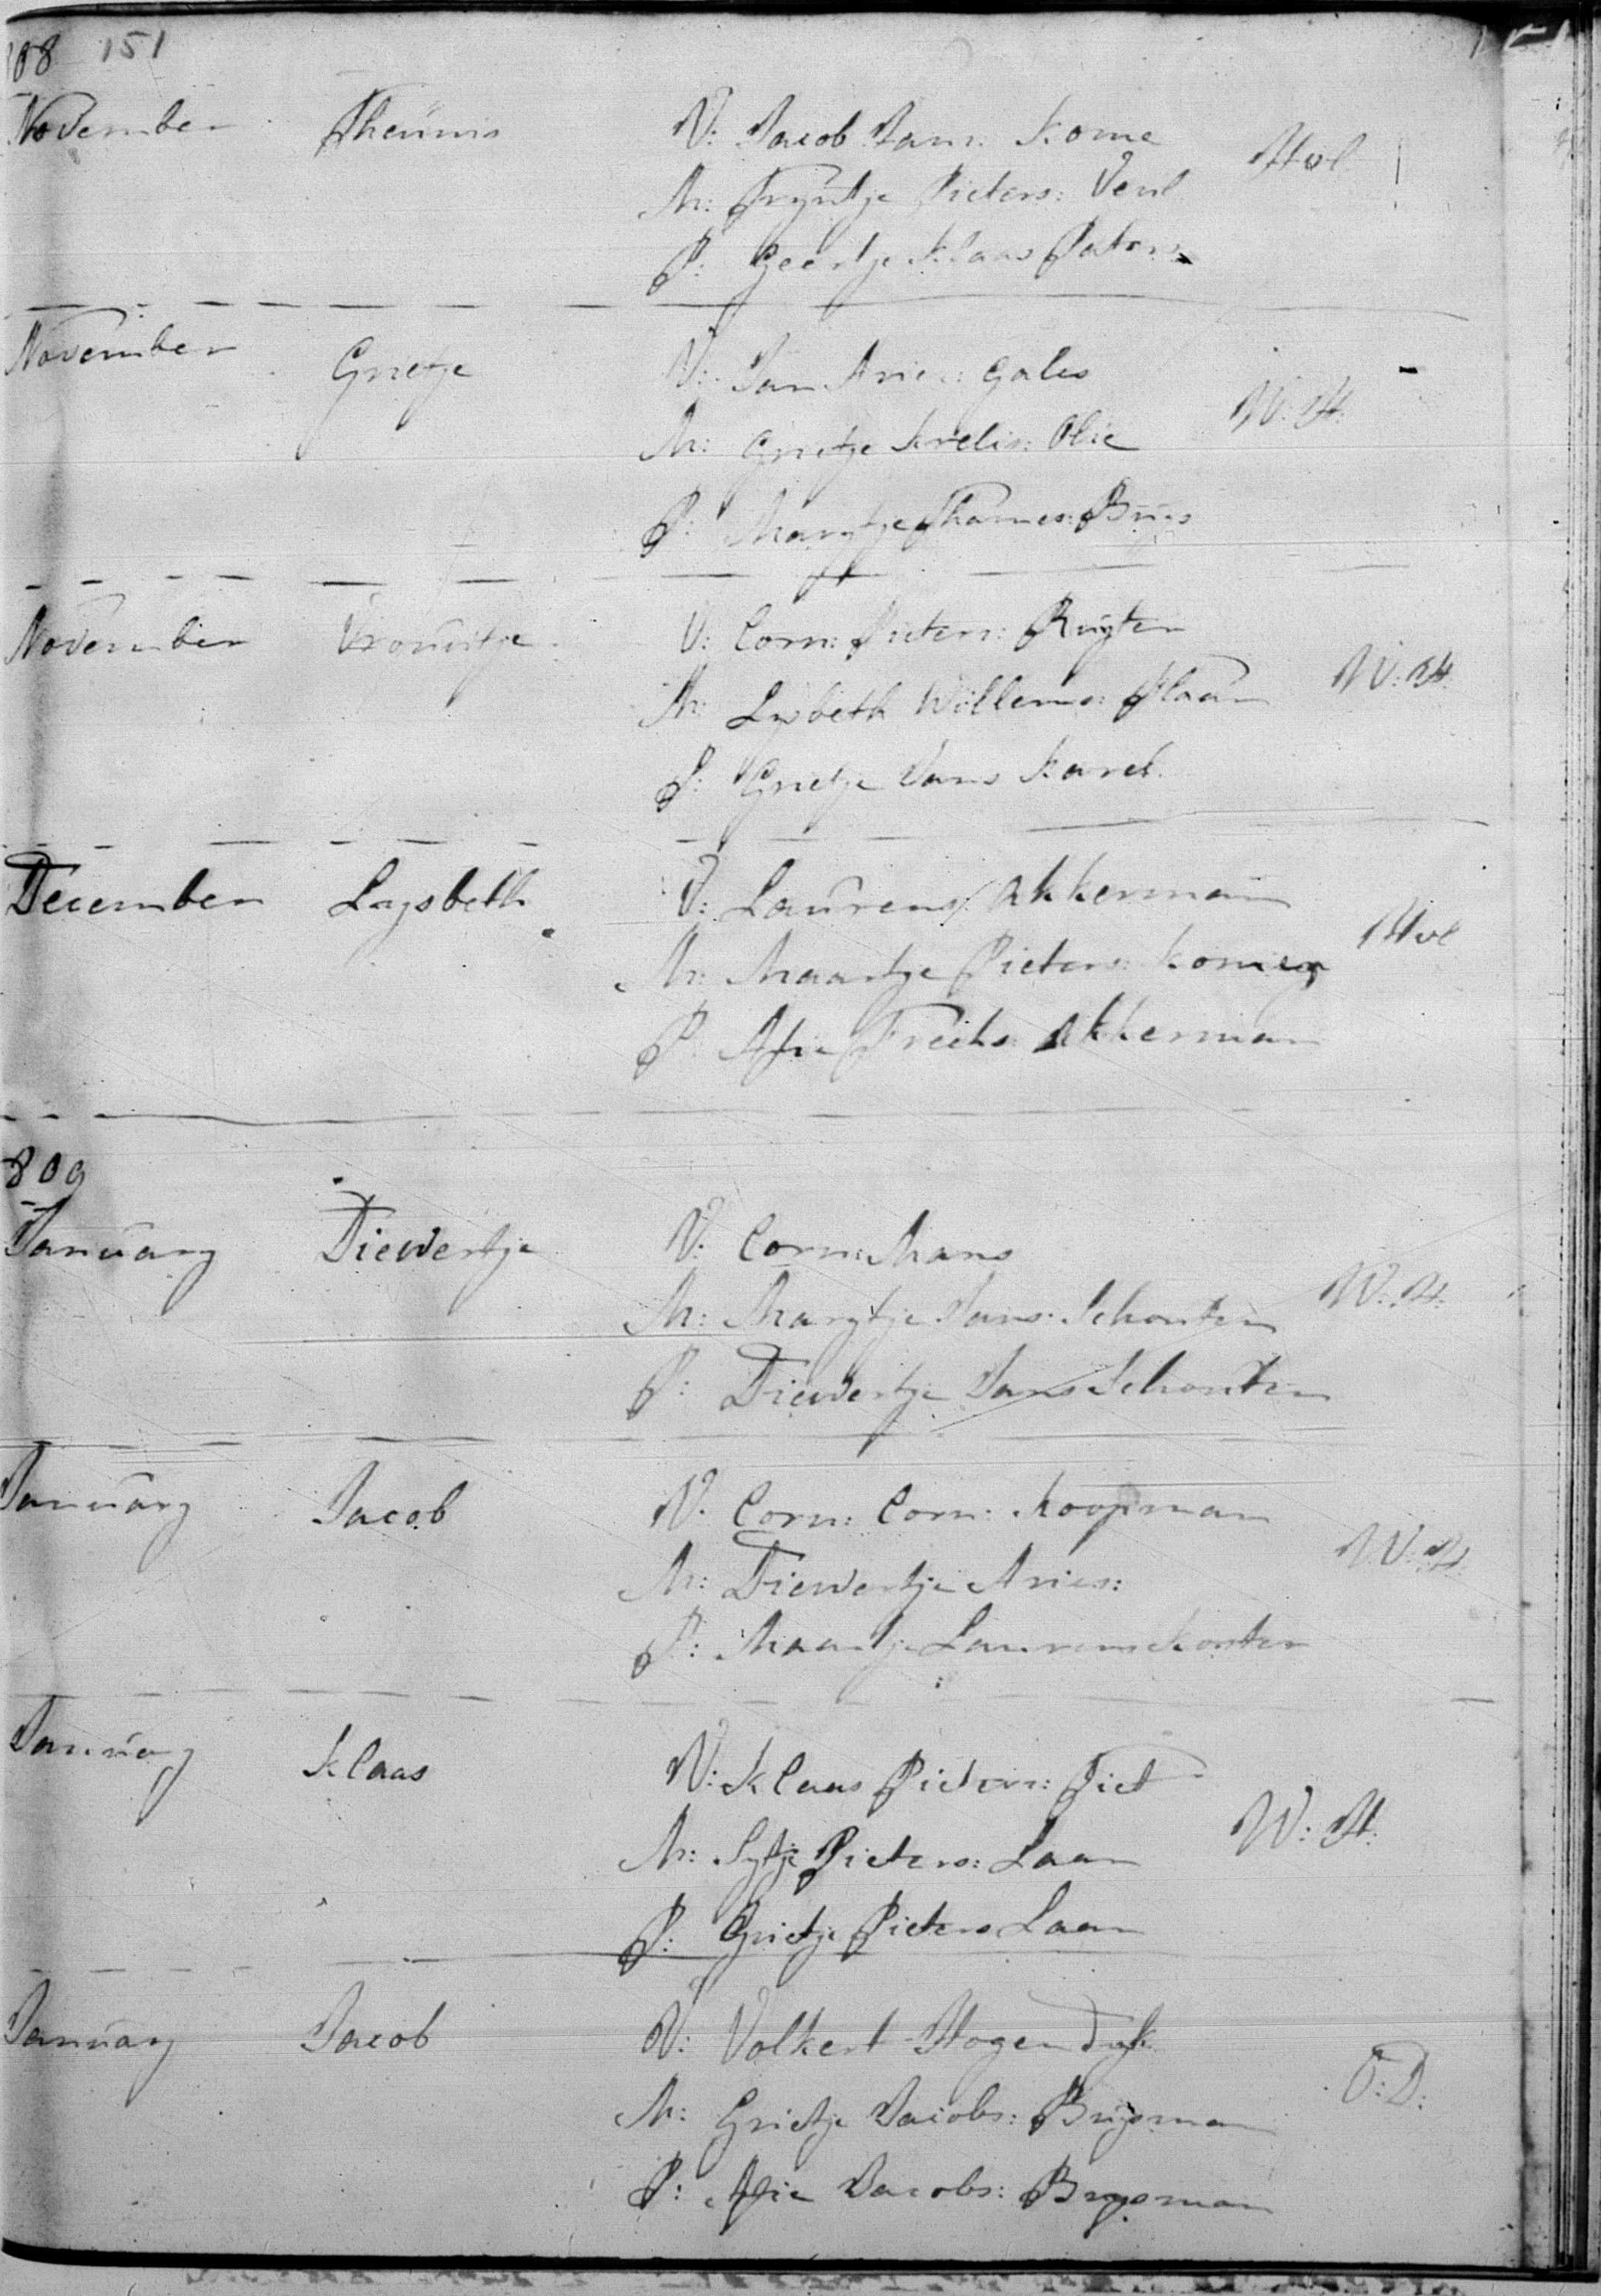 108 151
November Theunis V: Jacob Jans: Kome
Hvl
M: Tryntje Pieters: Veul
P: Geertje Klaas Paters
November Grietje V: Jan Aries: Gales
W: H:
M: Grietje Krelis: Olie
P: Marytje Thames: Buys
November Vrouwtje V: Corn: Pieters: Ruyter
M: Lysbeth Willems: Plaam W: H:
P: Grietje Jans Karel
December Lysbeth V: Laurens: Akkerman
Hvl
M: Maartje Pieters: Komen
P: Afie Freeks: Akkerman
809
January Diewertje V: Corn: Mans
M: Marytje Jans: Schouten W: H:
P: Diewertje Jans Schouten
January Jacob V: Corn: Corn: Koopman
M: Diewertje Aries: W: H:
P: Maartje Laurens Kouter
January Klaas V: Klaas Pieters: Piet
M: Sytje Pieters: Laan W: H:
P: Grietje Pieters Laan
January Jacob V: Volkert Hogendyk
O: D:
M: Grietje Jacobs: Buysman
P: Afie Jacobs: Buysman